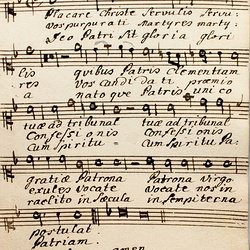 Placare Christe Servulis Servi:
vos purpurati Martyres marty:
Deo Patri sit gloria glori
lis quibus Patris Clementiam
res vos candidati præmio
a natoque Patris unico
tuæ ad tribunal tuæ ad tribunal
Confessionis Confessionis
cum Spiritu cum Spiritu Pa:
gratiæ Patrona Patrona virgo
exules vocate vocate nos in
raclito in sæcula in sempiterna
postulat.
Patriam.
amen